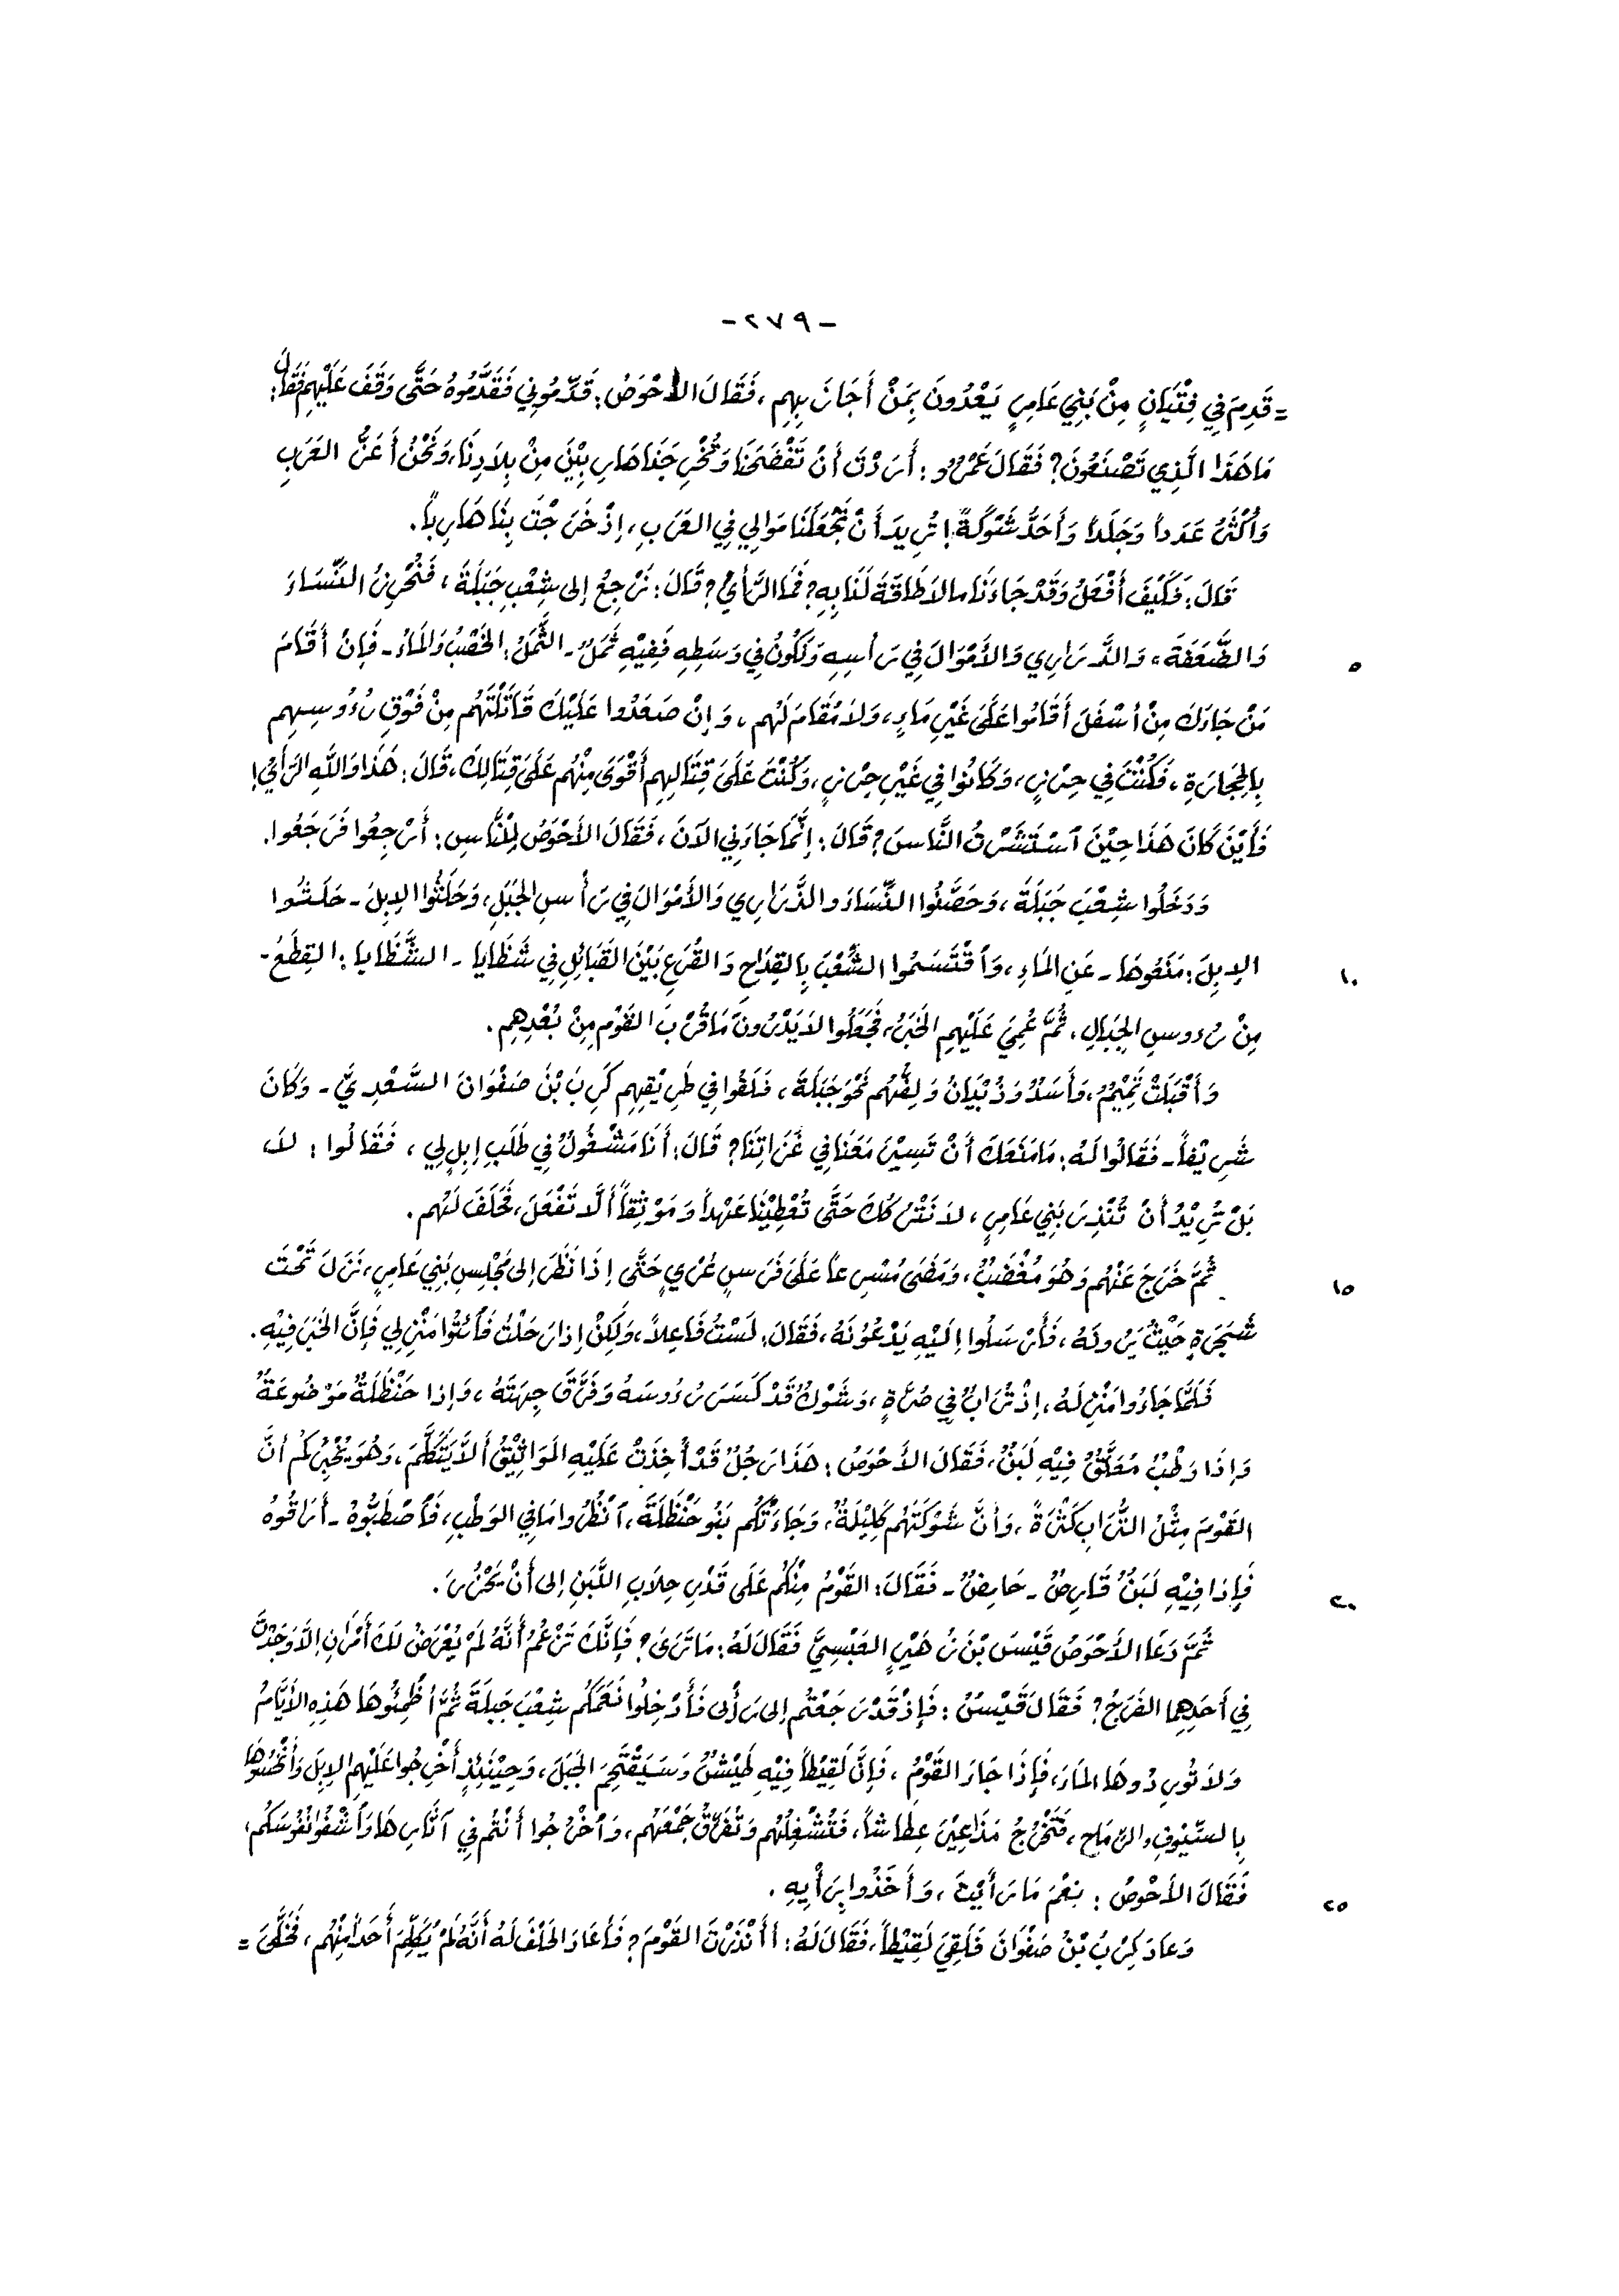 -٢٧٩-
= قَدِمَ فِي فِتْيَانٍ مِنْ بَنِي عَامِرٍ يَعْدُونَ بِمَنْ أَجَازَ بِهِم ، فَقَالَ الأحْوَصُ : قَدِّمُونِي فَقَدَّمُوهُ حَتَّى وَقَفَ عَلَيْهِم فَقَالَ :
مَا هَذَا الَّذِي تَصْنَعُونَ ؟ فَقَالَ عَمْرُو : أَرَدْتَ أَنْ تَفْضَحَنَا وَتُخْرِجَنَا هَارِبِيْنَ مِنْ بِلَادِنَا ، وَنَحْنُ أَعَزُّ العَرَبِ
وَأَكْثَرُ عَدَداً وَجَلَداً وَأَحَدُّ شَوْكَةً ! تُرِيدُ أَنْ تَجْعَلَنَا مَوَالِي فِي العَرَبِ ، إِذْ خَرَجْتَ بِنَا هَارِباً .
قَالَ : فَكَيْفَ أَفْعَلُ وَقَدْ جَاءَنَا مالَا طَاقَةَ لَنَا بِهِ ؟ فَمَا الرَّأْيُ ؟ قَالَ : نَرْجِعُ إلى شِعْبِ جَبَلَةَ ، فَنُحْرِزُ النِّسَاءَ
٥ وَالضَّعَفَةَ ، وَالذَّرَارِي وَالأَمْوَالَ فِي رَأسِهِ وَنَكُونُ فِي وَسَطِهِ فَفِيْهِ ثَمَلٌ - الثَّمَلُ : الخَصْبُ وَالمَاءُ - فَإِنْ أَقَامَ
مَنْ جَاءَكَ مِنْ أَسْفَلَ أَقَامُوا عَلَى غَيْرِ مَاءٍ ، وَلَا مُقَامَ لَهُم ، وَإِنْ صَعَدُوا عَلَيْكَ قَاتَلْتَهُم مِنْ فَوْقِ رُءُوسِهِم
بِالحِجَارَةِ ، فَكُنْتَ فِي حِرْزٍ ، وَكَانُوا فِي غَيْرِ حِرْزٍ ، وَكُنْتَ عَلَى قِتَالِهِم أَقْوَى مِنْهُم عَلَى قِتَالِكَ ، قَالَ : هَذَا وَاللهِ الرَّأيُ !
فَأَيْنَ كَانَ هَذَا حِيْنَ اسْتَشَرْتُ النَّاسَ ؟ قَالَ : إِنَّمَا جَاءَنِي الآنَ ، فَقَالَ الأَحْوَصُ لِلنَّاسِ : أَرْجِعُوا فَرَجَعُوا .
وَدَخَلُوا شِعْبَ جَبَلَةَ ، وَحَصَّنُوا النِّسَاءَ والذَّرَارِي وَالأَمْوَالَ فِي رَأْسِ الجَبَلِ ، وَحَلَئُوا الإِبِلَ - حَلَئُوا
١٠ الإِبِلَ : مَنَعُوهَا - عَنِ المَاءِ ، وَاقْتَسَمُوا الشِّعْبَ بِالقِدَاحِ وَالقُرَعِ بَيْنَ القَبَائِلِ فِي شَظَايا - الشَّظَايا : القِطَعُ -
مِنْ رُءوسِ الجِبَالِ ، ثُمَّ عُمِيَ عَلَيْهِمِ الخَبَرُ ، فَجَعَلُوا لَا يَدْرُونَ مَا قُرْبَ القَوْمِ مِنْ بُعْدِهِمِ .
وَأَقْبَلَتْ تَمِيْمٌ ، وَأَسَدٌ وَذُبْيَانُ وَلِفُّهُم نَحْوَ جَبَلَةَ ، فَلَقُوا فِي طَرِيْقِهِم كَرِبَ بْنَ صَفْوَانَ السَّعْدِيَّ - وَكَانَ
شَرِيْفاً - فَقَالُوا لَهُ : مَا مَنَعَكَ أَنْ تَسِيْرَ مَعَنَا فِي غَزَاتِنَا ؟ قَالَ : أَنَا مَشْغُولٌ فِي طَلَبِ إِبِلٍ لِي ، فَقَالُوا : لَا
بَلْ تُرِيْدُ أَنْ تُنْذِرَ بَنِي عَامِرٍ ، لَا نَتْرُكُكَ حَتَّى تُعْطِيْنَا عَهْداً وَمَوْثِقاً أَلَّا تَفْعَلَ ، فَحَلَفَ لَهُم .
١٥ ثُمَّ خَرَجَ عَنْهُم وَهُوَ مُغْضَبٌ ، وَمَضَى مُسْرِعاً عَلَى فَرَسٍ عُرْيٍ حَتَّى إِذَا نَظَرَ إِلى مَجْلِسِ بَنِي عَامِرٍ ، نَزَلَ تَحْتَ
شَجَرَةٍ حَيْثُ يَرَوْنَهُ ، فَأَرْسَلُوا إِلَيْهِ يَدْعُونَهُ ، فَقَالَ : لَسْتُ فَاعِلاً ، وَلَكِنْ إِذا رَحَلْتُ فَأْتُوا مَنْزِلِي فَإِنَّ الخَبَرَ فِيْهِ .
فَلَمَّا جَاءُوا مَنْزِلَهُ ، إِذْ تُرَابٌ فِي صُرَّةٍ ، وَشَوْكٌ قَدْ كَسَرَ رُءُوسَهُ وَفَرَّقَ جِهَتَهُ ، وَإِذا حَنْظَلَةٌ مَوْضُوعَةٌ
وَإِذَا وَطْبٌ مُعَلَّقٌ فِيْهِ لَبَنٌ ، فَقَالَ الأَحْوَصُ : هَذَا رَجُلٌ قَدْ أُخِذَتْ عَلَيْهِ المَوَاثِيْقُ أَلَّا يَتَكَلَّمَ ، وَهُوَ يُخْبِرُكُم أَنَّ
القَوْمَ مِثْلُ التُّرَابِ كَثْرَةً ، وَأَنَّ شَوْكَتَهُم كَلِيْلَةٌ ، وَجَاءَتْكُم بَنُو حَنْظَلَةَ ، انْظُرُوا مَا فِي الوَطْبِ ، فَاصْطَبُّوهُ - أَرَاقُوهُ
٢٠ فَإِذَا فِيْهِ لَبَنٌ قَارِصٌ - حَامِضٌ - فَقَالَ : القَوْمُ مِنْكُم عَلَى قَدْرِ حِلَابِ اللَّبَنِ إِلى أَنْ يَحْزُرَ .
ثُمَّ دَعَا الأَحْوَصُ قَيْسَ بْنَ زُهَيْرٍ العَبْسِيَّ فَقَالَ لَهُ : مَا تَرَى ؟ فَإِنَّكَ تَزْعُمُ أَنَّهُ لَمْ يُعْرَضْ لَكَ أَمْرَانِ إِلَّا وَجَدْتَ
فِي أَحَدِهِمَا الفَرَجَ ؟ فَقَالَ قَيْسٌ : فَإِذْ قَدْ رَجَعْتُم إِلى رَأْيِي فَأَدْخِلُوا نَعَمَكُم شِعْبَ جَبَلَةَ ثُمَّ أَظْمِئُوهَا هَذِهِ الأَيَّامَ
وَلَا تُورِدُوهَا المَاءَ ، فَإِذَا جَاءَ القَوْمُ ، فَإِنَّ لَقِيْطاً فِيْهِ طَيْشٌ وَسَيَقْتَحِمُ الجَبَلَ ، وَحِيْنَئِذٍ أَخْرِجُوا عَلَيْهِم الإِبِلَ وَانْخُسُوهَا
بِالسُّيُوفِ والرِّمَاحِ ، فَتَخْرُجُ مَذَاعِيْرَ عِطَاشاً ، فَتُشْغِلُهُم وَتُفَرِّقُ جَمْعَهُم ، وَاخْرُجُوا أَنْتُم فِي آثَارِهَا وَاشْفُوا نُفُوسَكُم ،
٢٥ فَقَالَ الأَحْوَصُ : نِعْمَ مَا رَأَيْتَ ، وَأَخَذُوا بِرَأْيِهِ .
وَعَادَ كَرِبُ بْنُ صَفْوَانَ فَلَقِيَ لَقِيْطاً ، فَقَالَ لَهُ : أَأَنْذَرْتَ القَوْمَ ؟ فَأَعَادَ الحَلْفَ لَهُ أَنَّهُ لَمْ يُكَلِّمْ أَحَداً مِنْهُم ، فَخَلَّى =